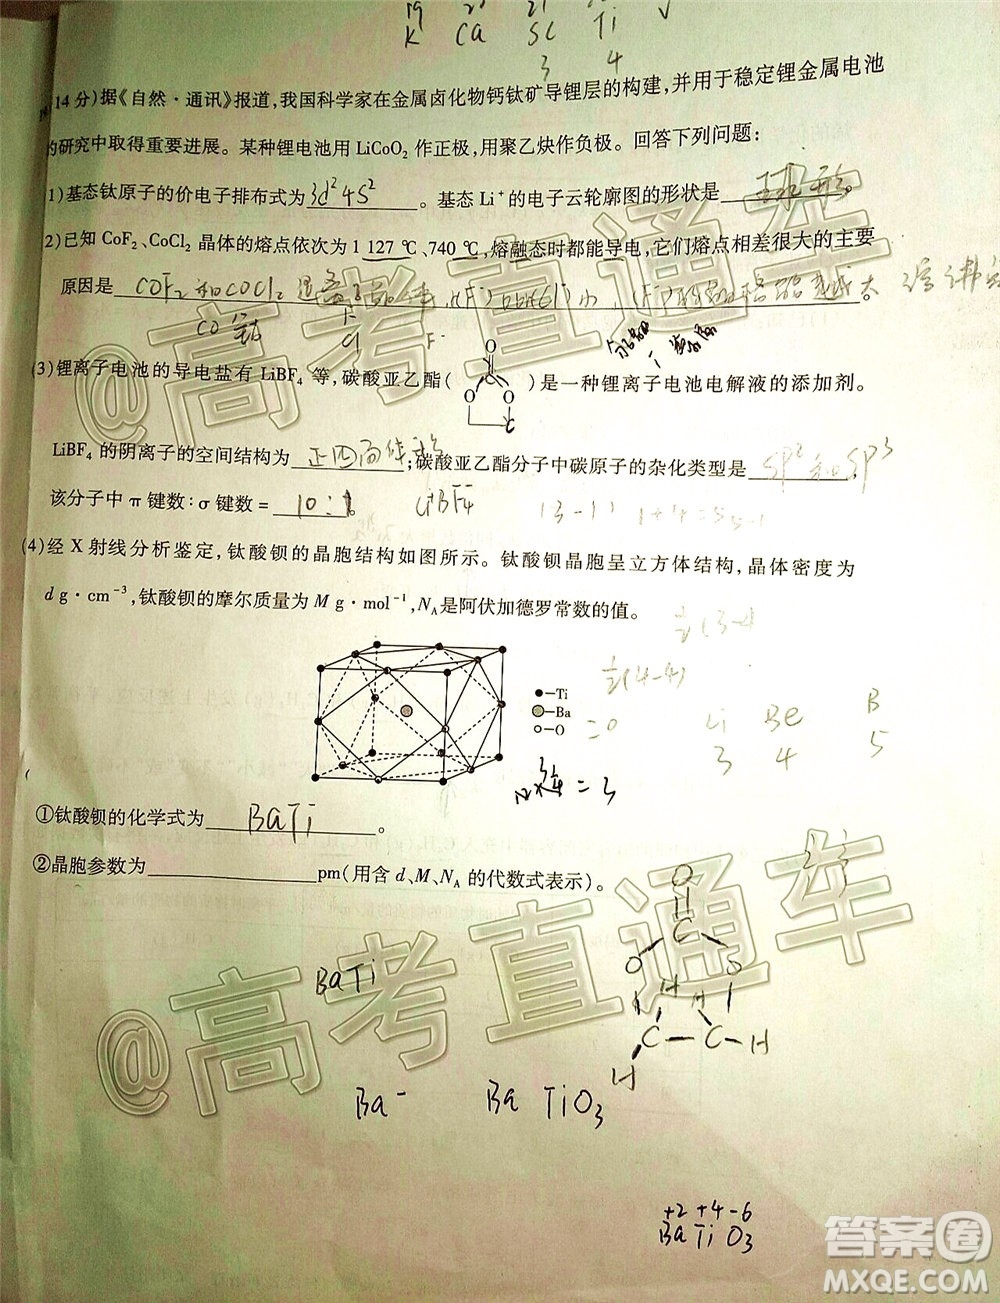 19
K Ca Sc Ti
3 4
14分)据《自然·通讯》报道,我国科学家在金属卤化物钙钛矿导锂层的构建,并用于稳定锂金属电池
的研究中取得重要进展。某种锂电池用 LiCoO2 作正极,用聚乙炔作负极。回答下列问题:
1)基态钛原子的价电子排布式为 3d²4S² 。基态 Li⁺的电子云轮廓图的形状是 球形。
2)已知 CoF2、CoCl2 晶体的熔点依次为 1 127 ℃、740 ℃,熔融态时都能导电,它们熔点相差很大的主要
原因是 COF2 和COCl2
CO 钴 Cl F-
O
(3)锂离子电池的导电盐有 LiBF4 等,碳酸亚乙酯( )是一种锂离子电池电解液的添加剂。
O O
LiBF4 的阴离子的空间结构为 正四面体形 ;碳酸亚乙酯分子中碳原子的杂化类型是 SP²和SP³
该分子中 π 键数∶σ 键数= 10:1 。 LiBF4
(4)经 X 射线分析鉴定,钛酸钡的晶胞结构如图所示。钛酸钡晶胞呈立方体结构,晶体密度为
d g·cm⁻³,钛酸钡的摩尔质量为 M g·mol⁻¹,NA是阿伏加德罗常数的值。
½(3-4
½(4-4)
=0
Ti
Ba
O
Li Be B
3 4 5
= 3
①钛酸钡的化学式为 BaTi 。
②晶胞参数为 pm(用含 d、M、NA 的代数式表示)。
O
C
O O
H H
C C H
H
BaTi
Ba- Ba TiO3
+2+4-6
BaTiO3
@高考直通车
@高考直通车
答案圈
MXQE.COM